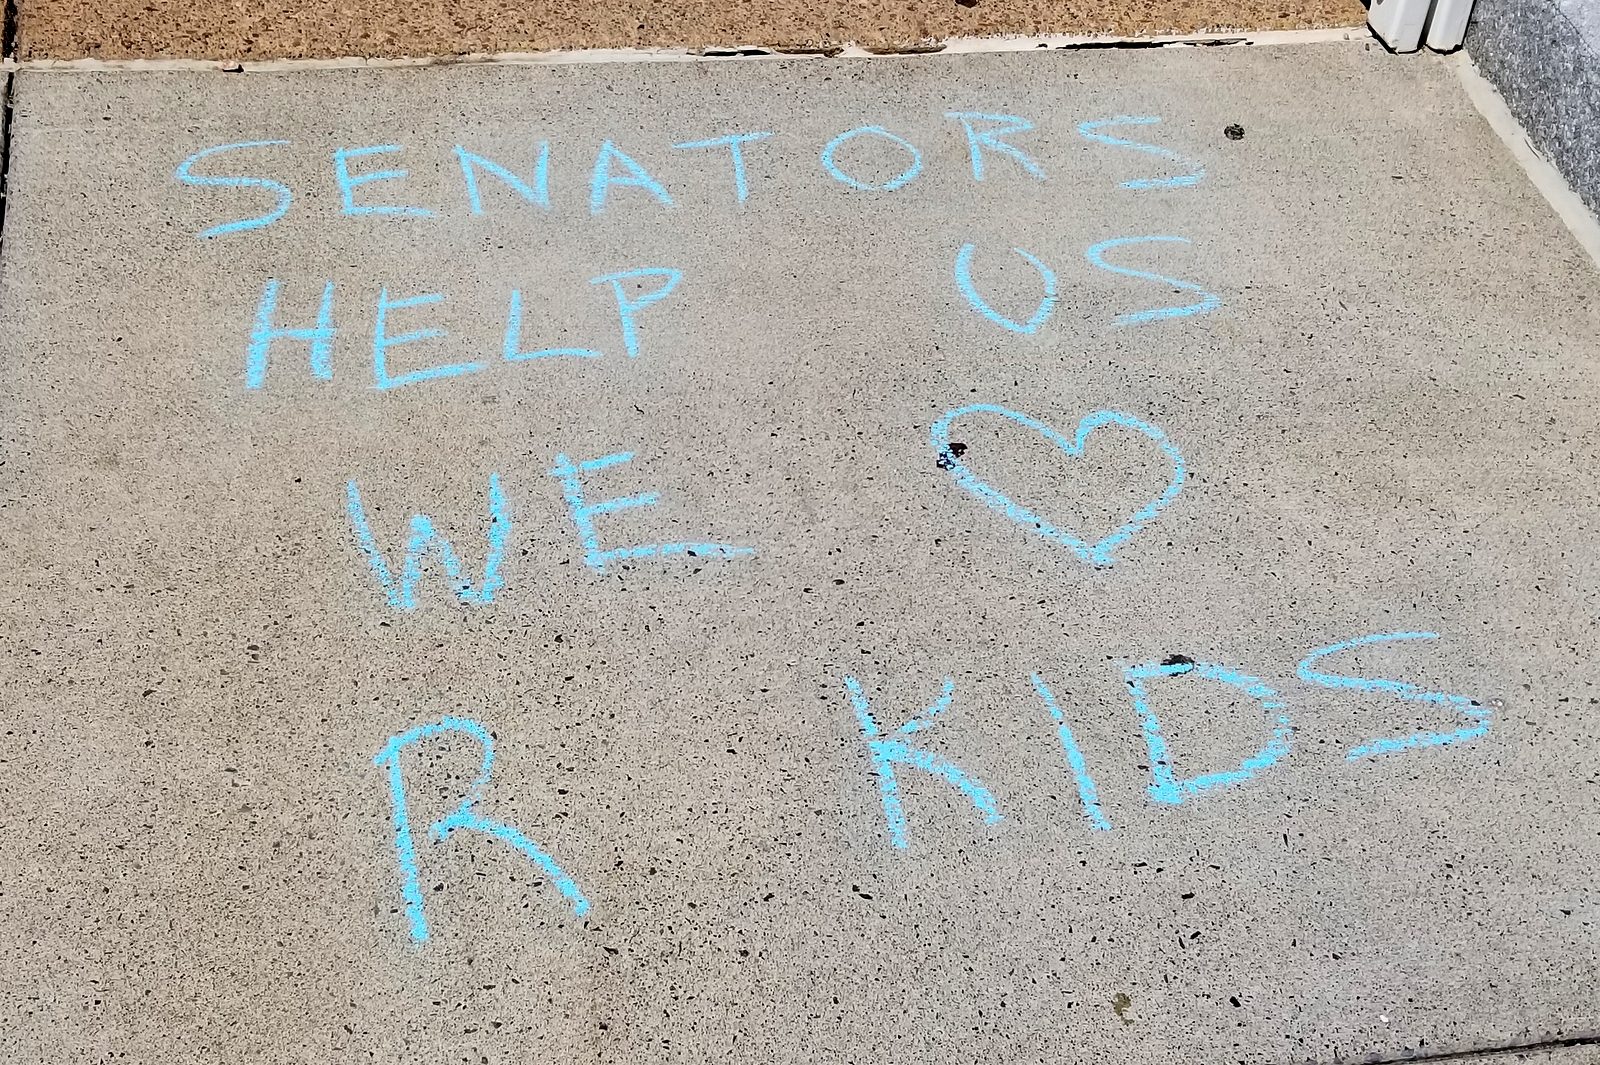 SENATORS
HELP US
WE ♡
R KIDS